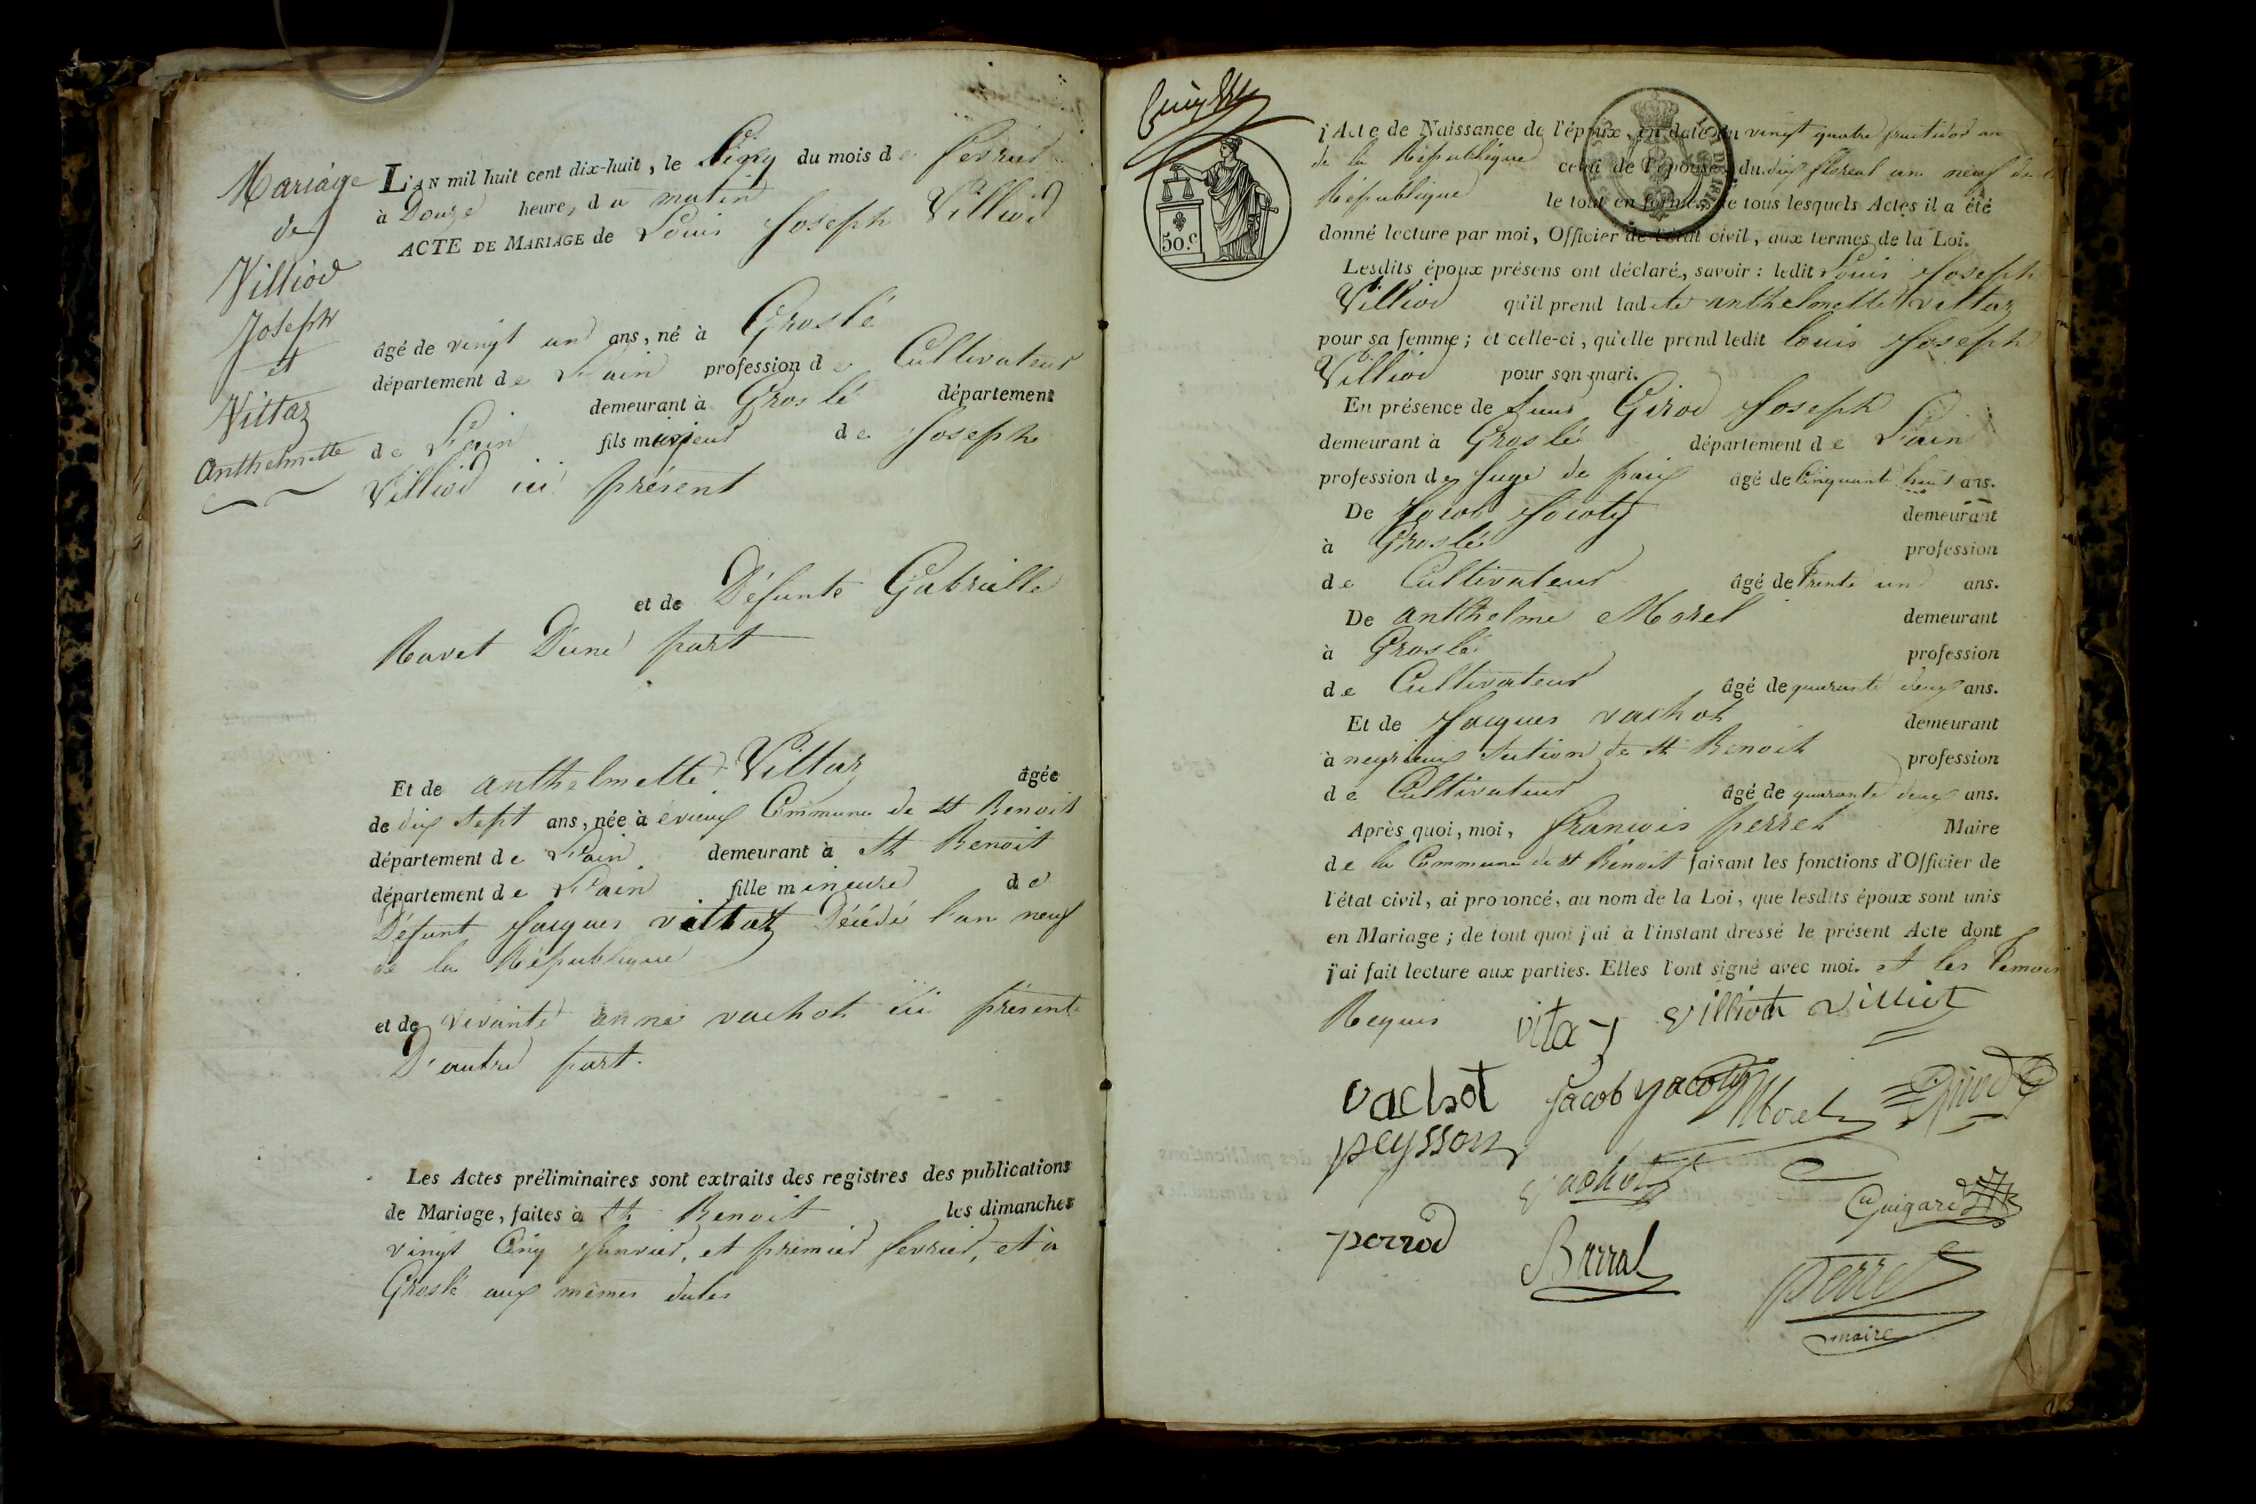 Mariage
de
Villiod
Joseph
et
Vittaz
anthelmette
L'AN mil huit cent dix-huit, le Cinq du mois de fevrier
à Douze heures du matin
ACTE DE MARIAGE de Louis Joseph Villiod
âgé de vingt un ans, né à Groslé
département de L'ain profession de Cultivateur
demeurant à Groslé département
de L'ain fils majeur de Joseph
Villiod ici présent
et de Défunte Gabrielle
Ravet D'une part
Et de anthelmette Vittaz âgée
de dix sept ans, née à evieux Commune de St Benoit
département de L'ain demeurant à St Benoit
département de L'ain fille mineure de
Défunt Jacques vittaz Décédé l'an neuf
de la République
et de vivante anne vachot ici présente
D'autre part.
Les Actes préliminaires sont extraits des registres des publications
de Mariage, faites à St Benoit les dimanches
vingt Cinq Janvier, et premier fevrier, et à
Groslé aux mêmes dates
50.c
j Acte de Naissance de l'époux, en date du vingt quatre fructidor an
de la République celui de l'épouse du dix floreal an neuf de la
République le tout en formes de tous lesquels Actes il a été
donné lecture par moi, Officier de l'état civil, aux termes de la Loi.
Lesdits époux présens ont déclaré, savoir: ledit Louis Joseph
Villiod qu'il prend ladite anthelmette vittaz
pour sa femme; et celle-ci, qu'elle prend ledit louis Joseph
Villiod pour son mari.
En présence de Girod Joseph
demeurant à Groslé département de L'ain
profession de Juge de paix âgé de Cinquante huit ans.
De Jacob Jacoty demeurant
à Groslé profession
de Cultivateur âgé de trente un ans.
De anthelme Morel demeurant
à Groslé profession
de Cultivateur âgé de quarante deux ans.
Et de Jacques vachot demeurant
à neyrieux section de St Benoit profession
de Cultivateur âgé de quarante deux ans.
Après quoi, moi, francois perret Maire
de la Commune de St Benoit faisant les fonctions d'Officier de
l'état civil, ai prononcé, au nom de la Loi, que lesdits époux sont unis
en Mariage; de tout quoi j'ai à l'instant dressé le présent Acte dont
j'ai fait lecture aux parties. Elles l'ont signé avec moi. et les temoins
Requis vitaz villiod villiot
vachot Jacob yacoty Morel Girod
peysson
vachot Guigard
perrod Barral perret
maire